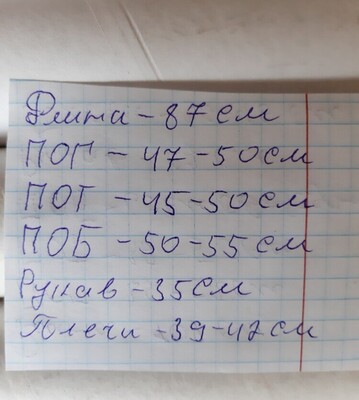 Длина - 87 см
ПОГ - 47 - 50 см
ПОТ - 45-50 см
ПОБ - 50-55 см
Рукав - 35 см
Плечи - 39-42 см